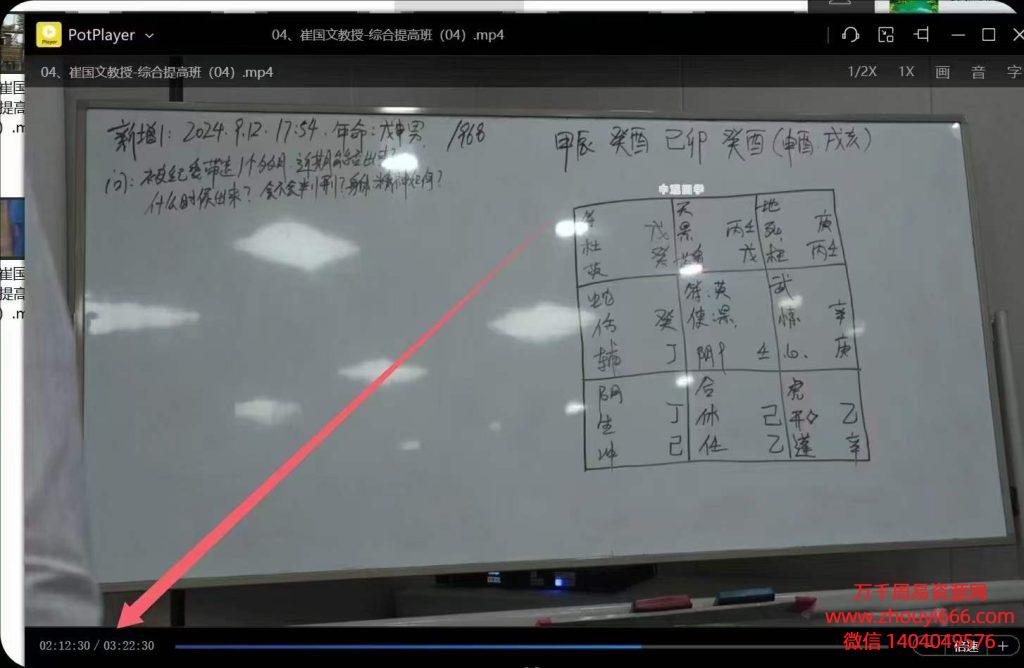 PotPlayer
04、崔国文教授-综合提高班（04）.mp4
04、崔国文教授-综合提高班（04）.mp4
1/2X 1X 画 音 字
新增1: 2024.9.12.17:54.年命:戊申男 1968
问: 被纪委带走1个多月.近期能否出来?
什么时候出来? 会不会判刑? 身体.精神如何?
甲辰 癸酉 己卯 癸酉(申酉.戌亥)
符 天 地
杜 戊 景 丙壬 死 庚
英 癸 戊 柱 丙壬
蛇 符:英 武
伤 癸 使:景 惊 辛
辅 丁 阴1 壬 心 庚
阴 合 虎
生 丁 休 己 开 乙
冲 己 任 乙 蓬 辛
万千周易资源网
www.zhouyi666.com
微信 1404049576
02:12:30 / 03:22:30
倍速